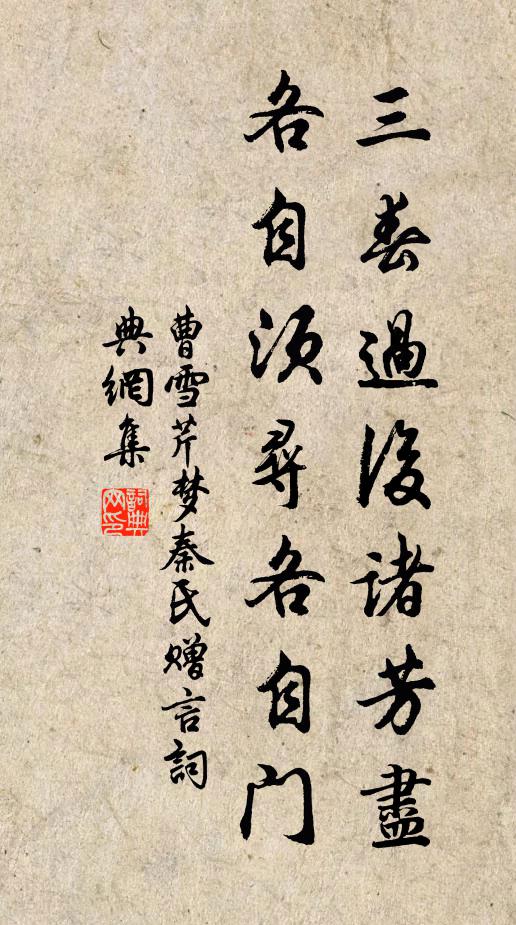 三春過後諸芳盡
各自須尋各自门
曹雪芹梦秦氏赠言詞
典網集
詞典
网印